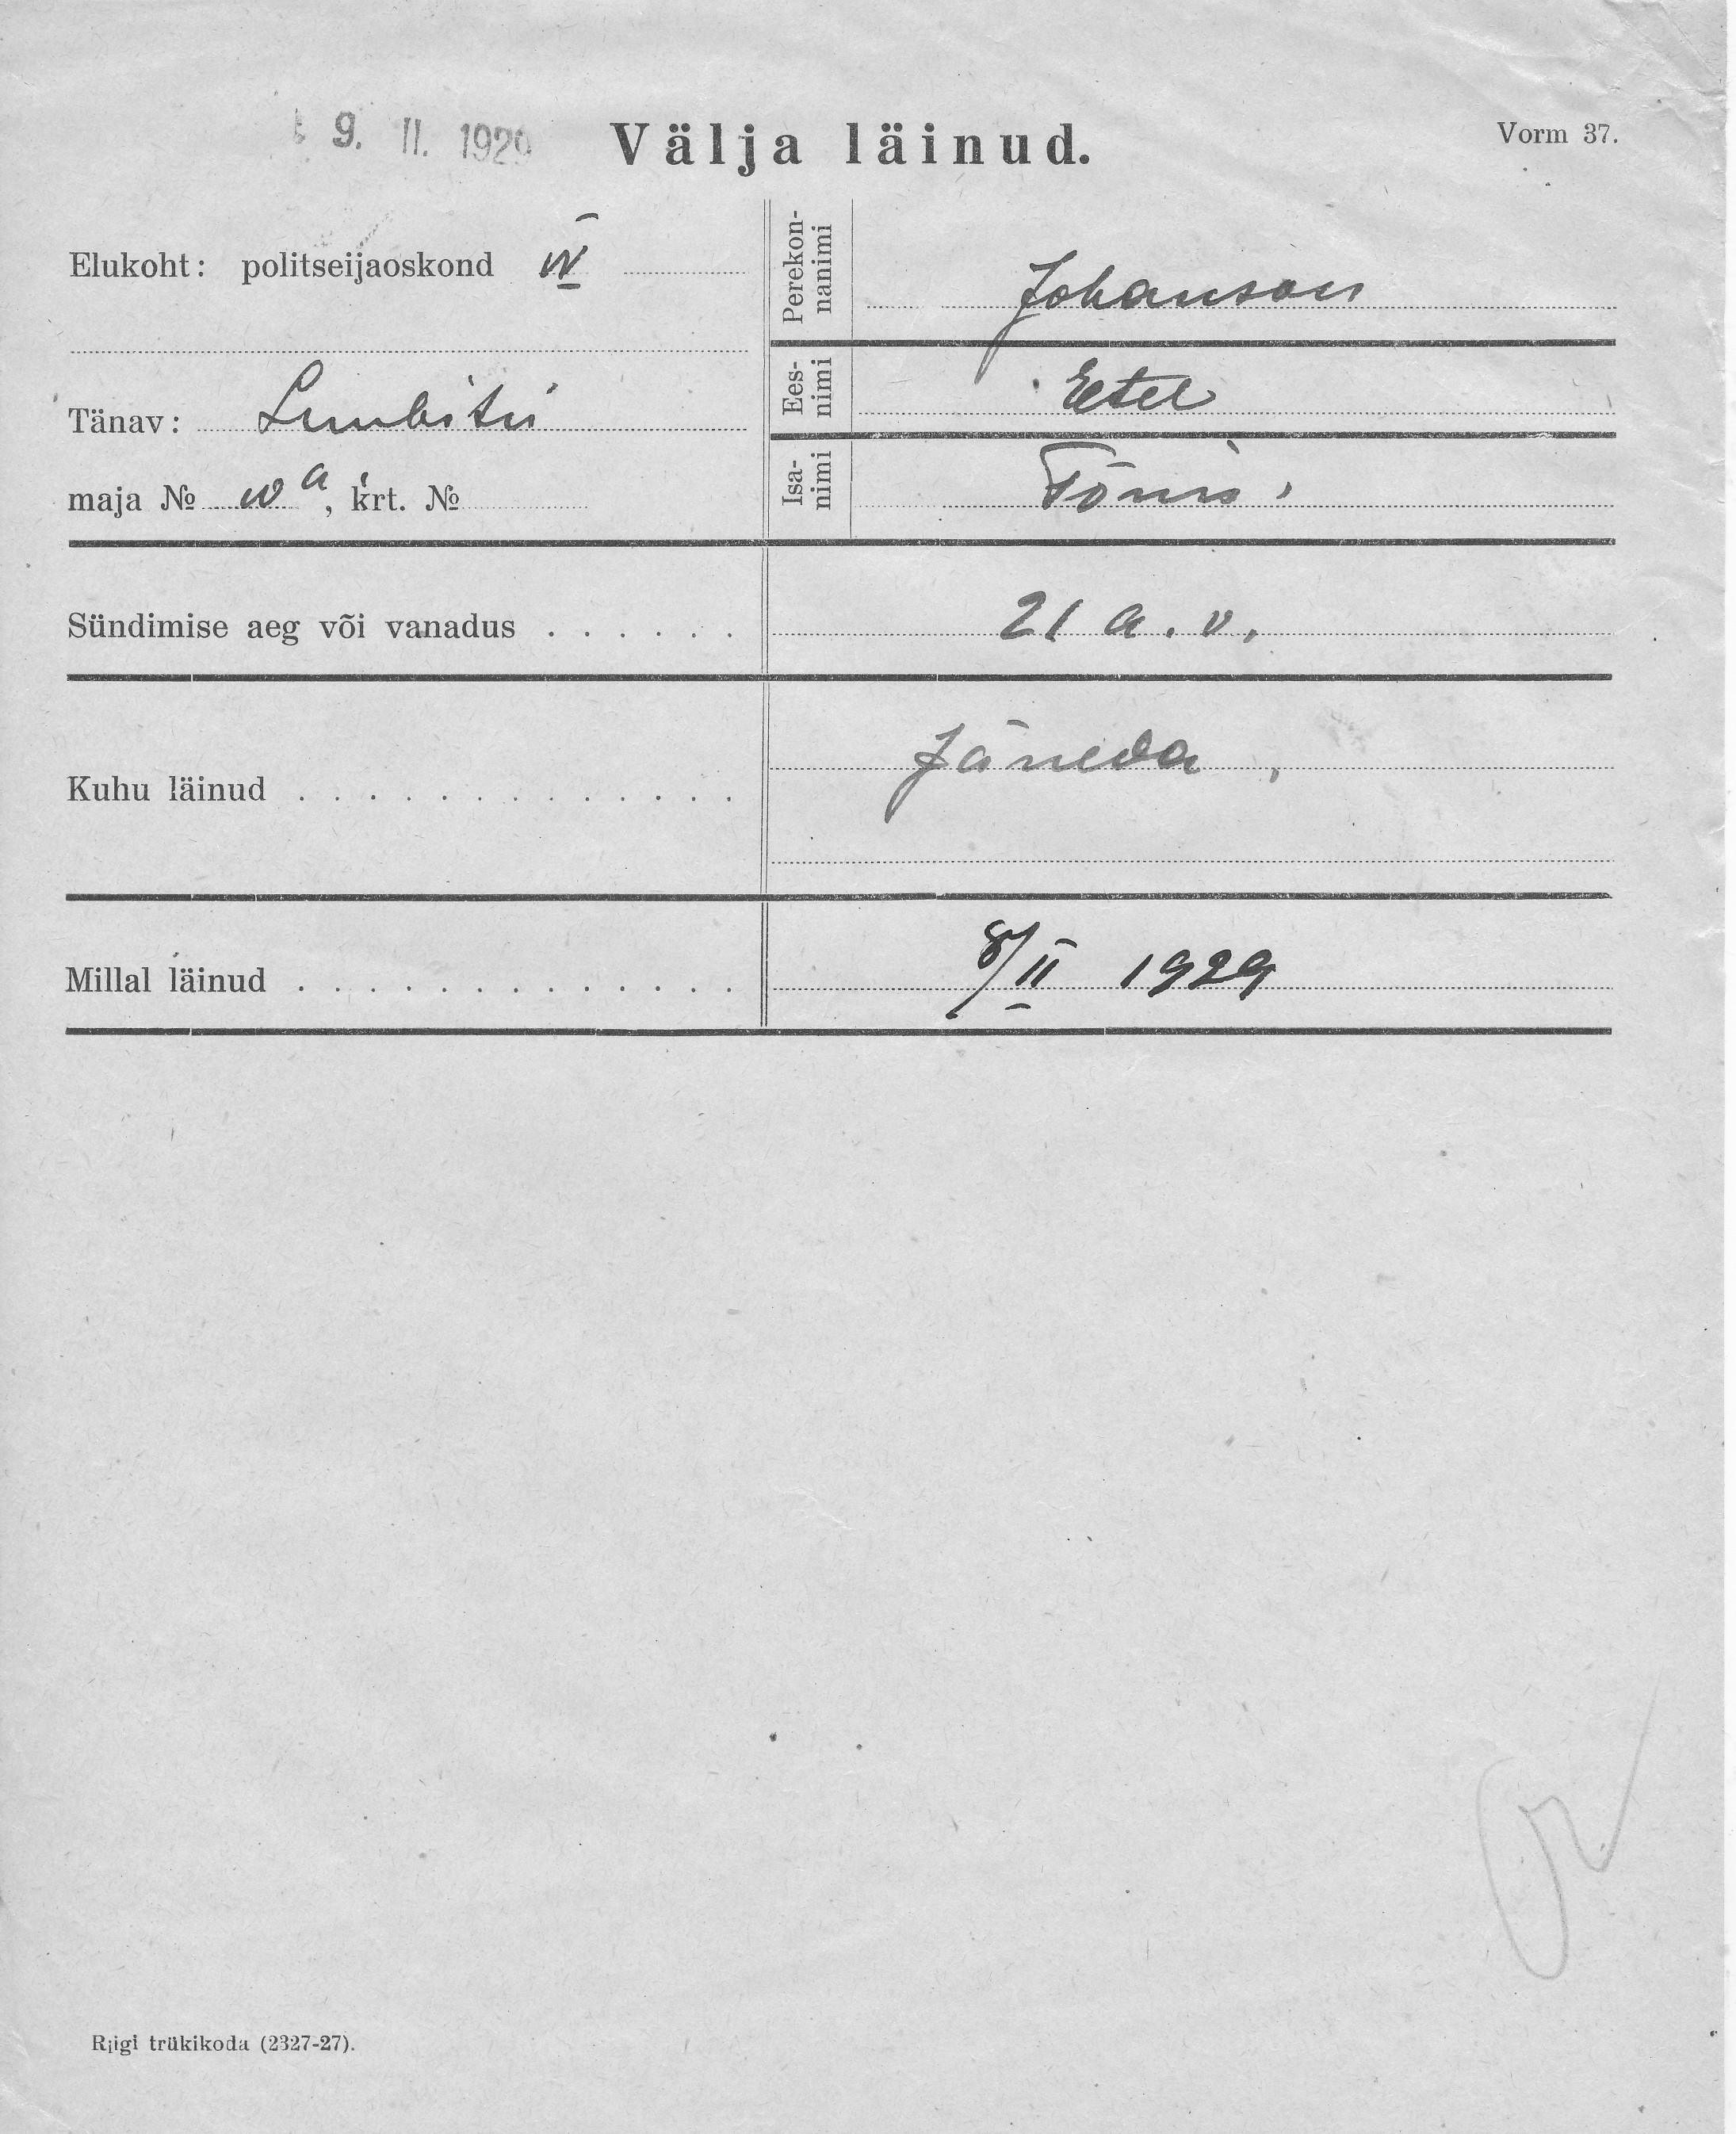 9. II. 1929
Välja läinud.
Vorm 37.
Elukoht: politseijaoskond IV
Tänav: Lembitu
maja № 10 a, krt. №
Perekon-
nanimi
Johanson
Ees-
nimi
Eetel
Isa-
nimi
Tõnis.
Sündimise aeg või vanadus . . . . . . 21 a. v.
Kuhu läinud . . . . . . . . . . . . . Jäneda,
Millal läinud . . . . . . . . . . . . . 8/II 1929
Riigi trükikoda (2327-27).